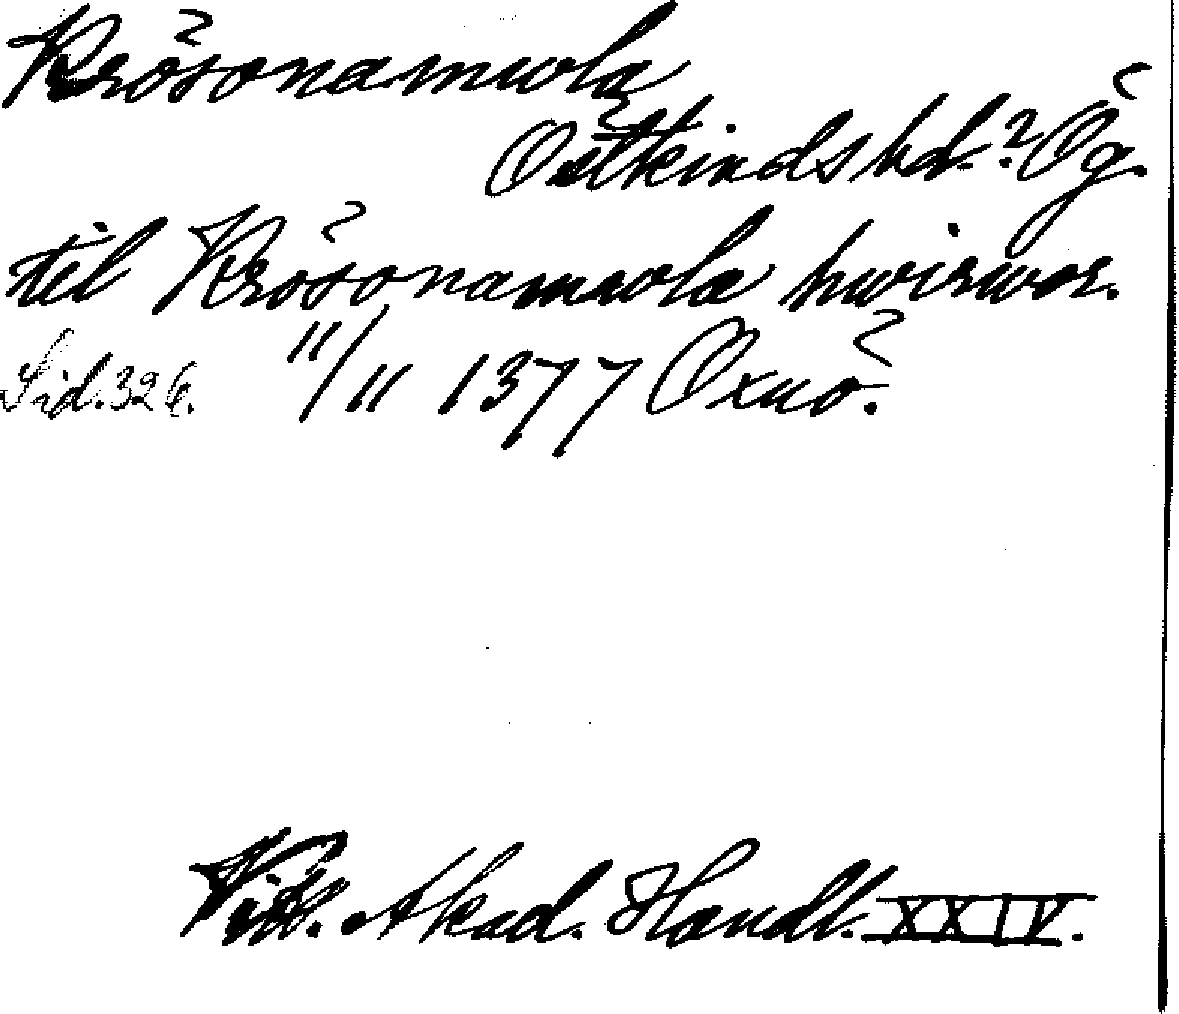 Krösonamwola
Östkinds hd.? Ög.
til Krösonamwola hwirwer.
Sid. 326. 11/11 1377 Oxnö.
Vitt. Akad. Handl. XXIV.